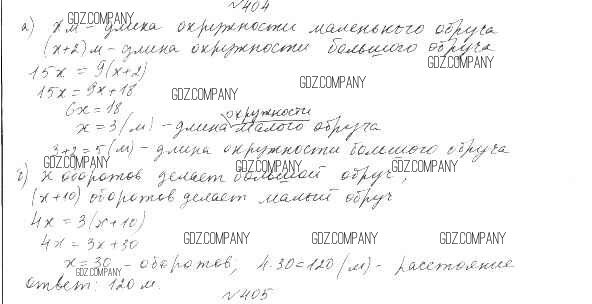 №404
а) x м - длина окружности маленького обруча
(x+2) м - длина окружности большого обруча
15x = 9(x+2)
15x = 9x+18
6x = 18
окружности
x = 3 (м) - длина малого обруча
3+2 = 5 (м) - длина окружности большого обруча
б) x оборотов делает большой обруч,
(x+10) оборотов делает малый обруч
4x = 3(x+10)
4x = 3x+30
x = 30 - оборотов; 4·30=120 (м) - расстояние
ответ: 120 м.
№405
GDZ.COMPANY
GDZ.COMPANY
GDZ.COMPANY
GDZ.COMPANY
GDZ.COMPANY
GDZ.COMPANY
GDZ.COMPANY
GDZ.COMPANY
GDZ.COMPANY
GDZ.COMPANY
GDZ.COMPANY